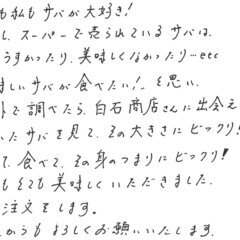 も私もサバが大好き！
し、スーパーで売られているサバは、
うすかったり、美味しくなかったり…etc
味しいサバが食べたい!、を思い、
トで調べたら、白石商店さんに出会え
いたサバを見て、その大きさにビックリ!
て、食べて、その身のつまりにビックリ!
もとても美味しくいただきました。
注文をします。
からもよろしくお願いいたします。